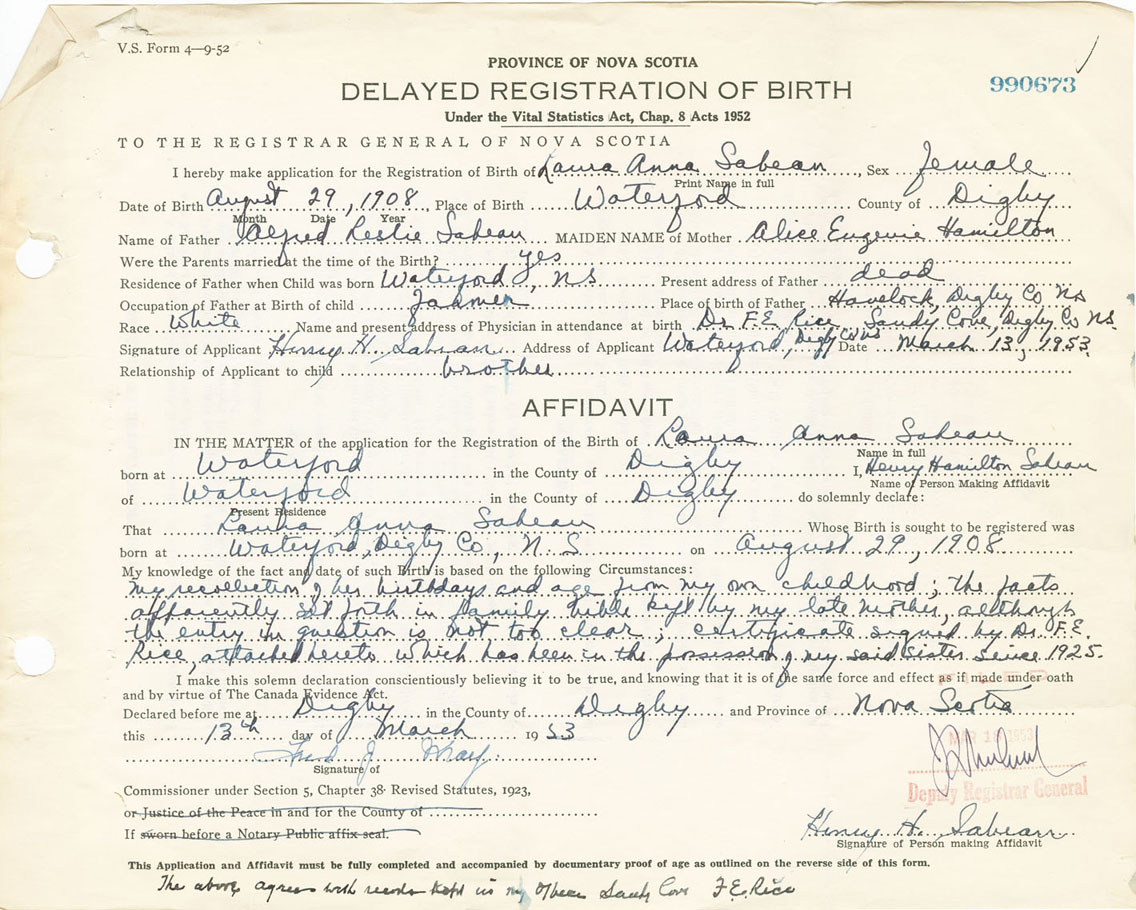 V.S. Form 4—9-52
PROVINCE OF NOVA SCOTIA
DELAYED REGISTRATION OF BIRTH
990673
Under the Vital Statistics Act, Chap. 8 Acts 1952
TO THE REGISTRAR GENERAL OF NOVA SCOTIA
I hereby make application for the Registration of Birth of Laura Anna Sabean, Sex female
Print Name in full
Date of Birth August 29, 1908, Place of Birth Waterford County of Digby
Month Date Year
Name of Father Alfred Leslie Sabean MAIDEN NAME of Mother Alice Eugenie Hamilton
Were the Parents married at the time of the Birth? yes
Residence of Father when Child was born Waterford, NS Present address of Father dead
Occupation of Father at Birth of child Farmer Place of birth of Father Havelock, Digby Co NS
Race White Name and present address of Physician in attendance at birth Dr F.E. Rice, Sandy Cove, Digby Co NS
Signature of Applicant Henry H. Sabean Address of Applicant Waterford, Digby Co NS Date March 13, 1953
Relationship of Applicant to child brother
AFFIDAVIT
IN THE MATTER of the application for the Registration of the Birth of Laura Anna Sabean
Name in full
born at Waterford in the County of Digby I, Henry Hamilton Sabean
Name of Person Making Affidavit
of Waterford in the County of Digby do solemnly declare:
Present Residence
That Laura Anna Sabean Whose Birth is sought to be registered was
born at Waterford, Digby Co., N.S. on August 29, 1908
My knowledge of the fact and date of such Birth is based on the following Circumstances:
my recollection of her birthdays and age from my own childhood; the facts
apparently set forth in family bible kept by my late mother, although
the entry in question is not too clear; certificate signed by Dr. F.E.
Rice, attached hereto which has been in the possession of my said sister since 1925.
I make this solemn declaration conscientiously believing it to be true, and knowing that it is of the same force and effect as if made under oath
and by virtue of The Canada Evidence Act.
Declared before me at Digby in the County of Digby and Province of Nova Scotia
this 13th day of March 1953
MAR 1953
Signature of
Deputy Registrar General
Commissioner under Section 5, Chapter 38 Revised Statutes, 1923,
or Justice of the Peace in and for the County of
If sworn before a Notary Public affix seal.
Henry H. Sabean
Signature of Person making Affidavit
This Application and Affidavit must be fully completed and accompanied by documentary proof of age as outlined on the reverse side of this form.
The above agrees with records kept in my office Sandy Cove F.E. Rice